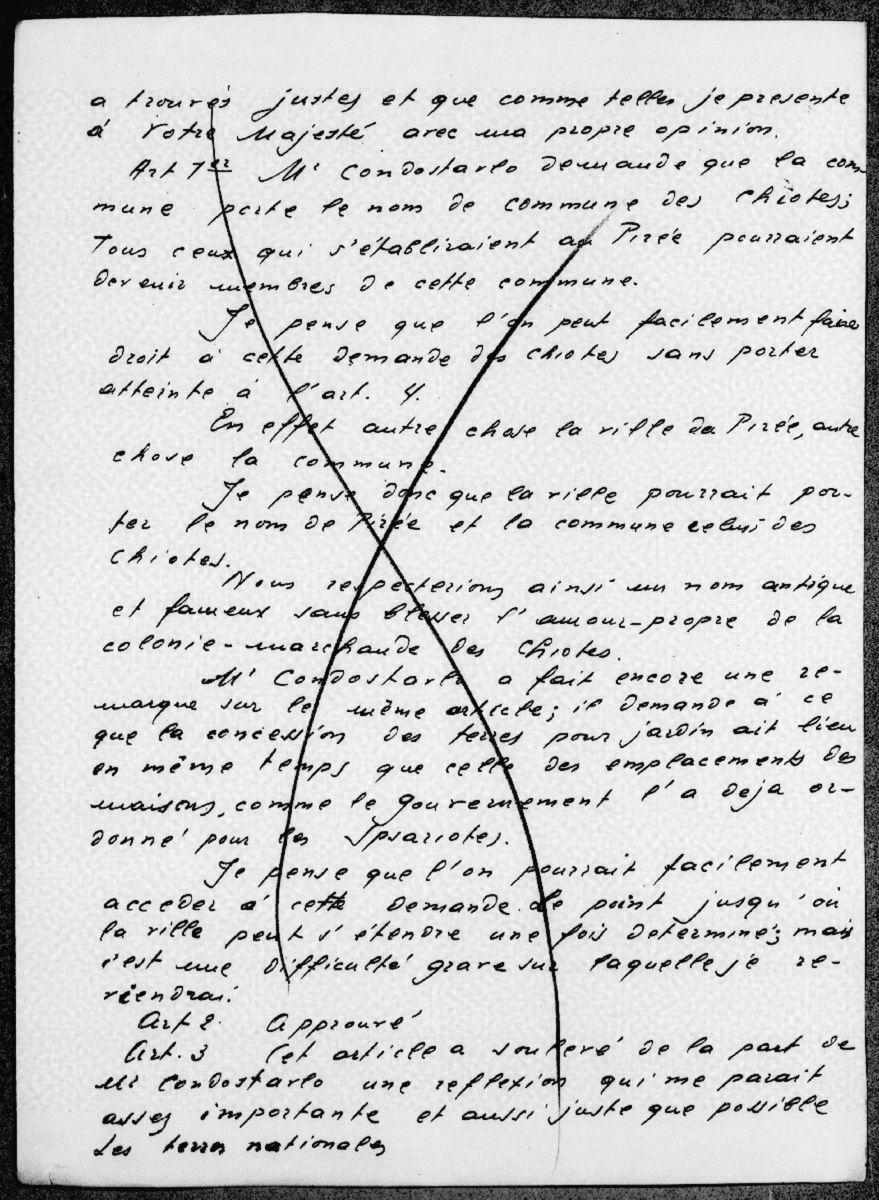 a trouvés justes et que comme telles je presente
à Votre Majesté avec ma propre opinion.
Art 1er Mr Condostavlo demande que la com-
mune porte le nom de commune des Chiotes;
Tous ceux qui s'établiraient au Pirée pourraient
devenir membres de cette commune.
Je pense que l'on peut facilement faire
droit à cette demande des Chiotes sans porter
atteinte à l'art. 4.
En effet autre chose la ville du Pirée, autre
chose la commune.
Je pense donc que la ville pourrait por-
ter le nom de Pirée et la commune celui des
Chiotes.
Nous respecterions ainsi un nom antique
et fameux sans blesser l'amour-propre de la
colonie-marchande des Chiotes.
Mr Condostavlo a fait encore une re-
marque sur le même article; il demande à ce
que la concession des terres pour jardin ait lieu
en même temps que celle des emplacements des
maisons, comme le gouvernement l'a deja or-
donné pour les Ipsariotes.
Je pense que l'on pourrait facilement
acceder à cette demande. Le point jusqu'où
la ville peut s'étendre une fois determiné; mais
c'est une difficulté grave sur laquelle je re-
viendrai.
Art 2. Approuvé
Art. 3 Cet article a soulevé de la part de
Mr Condostavlo une reflexion qui me parait
assez importante et aussi juste que possible
Les terres nationales